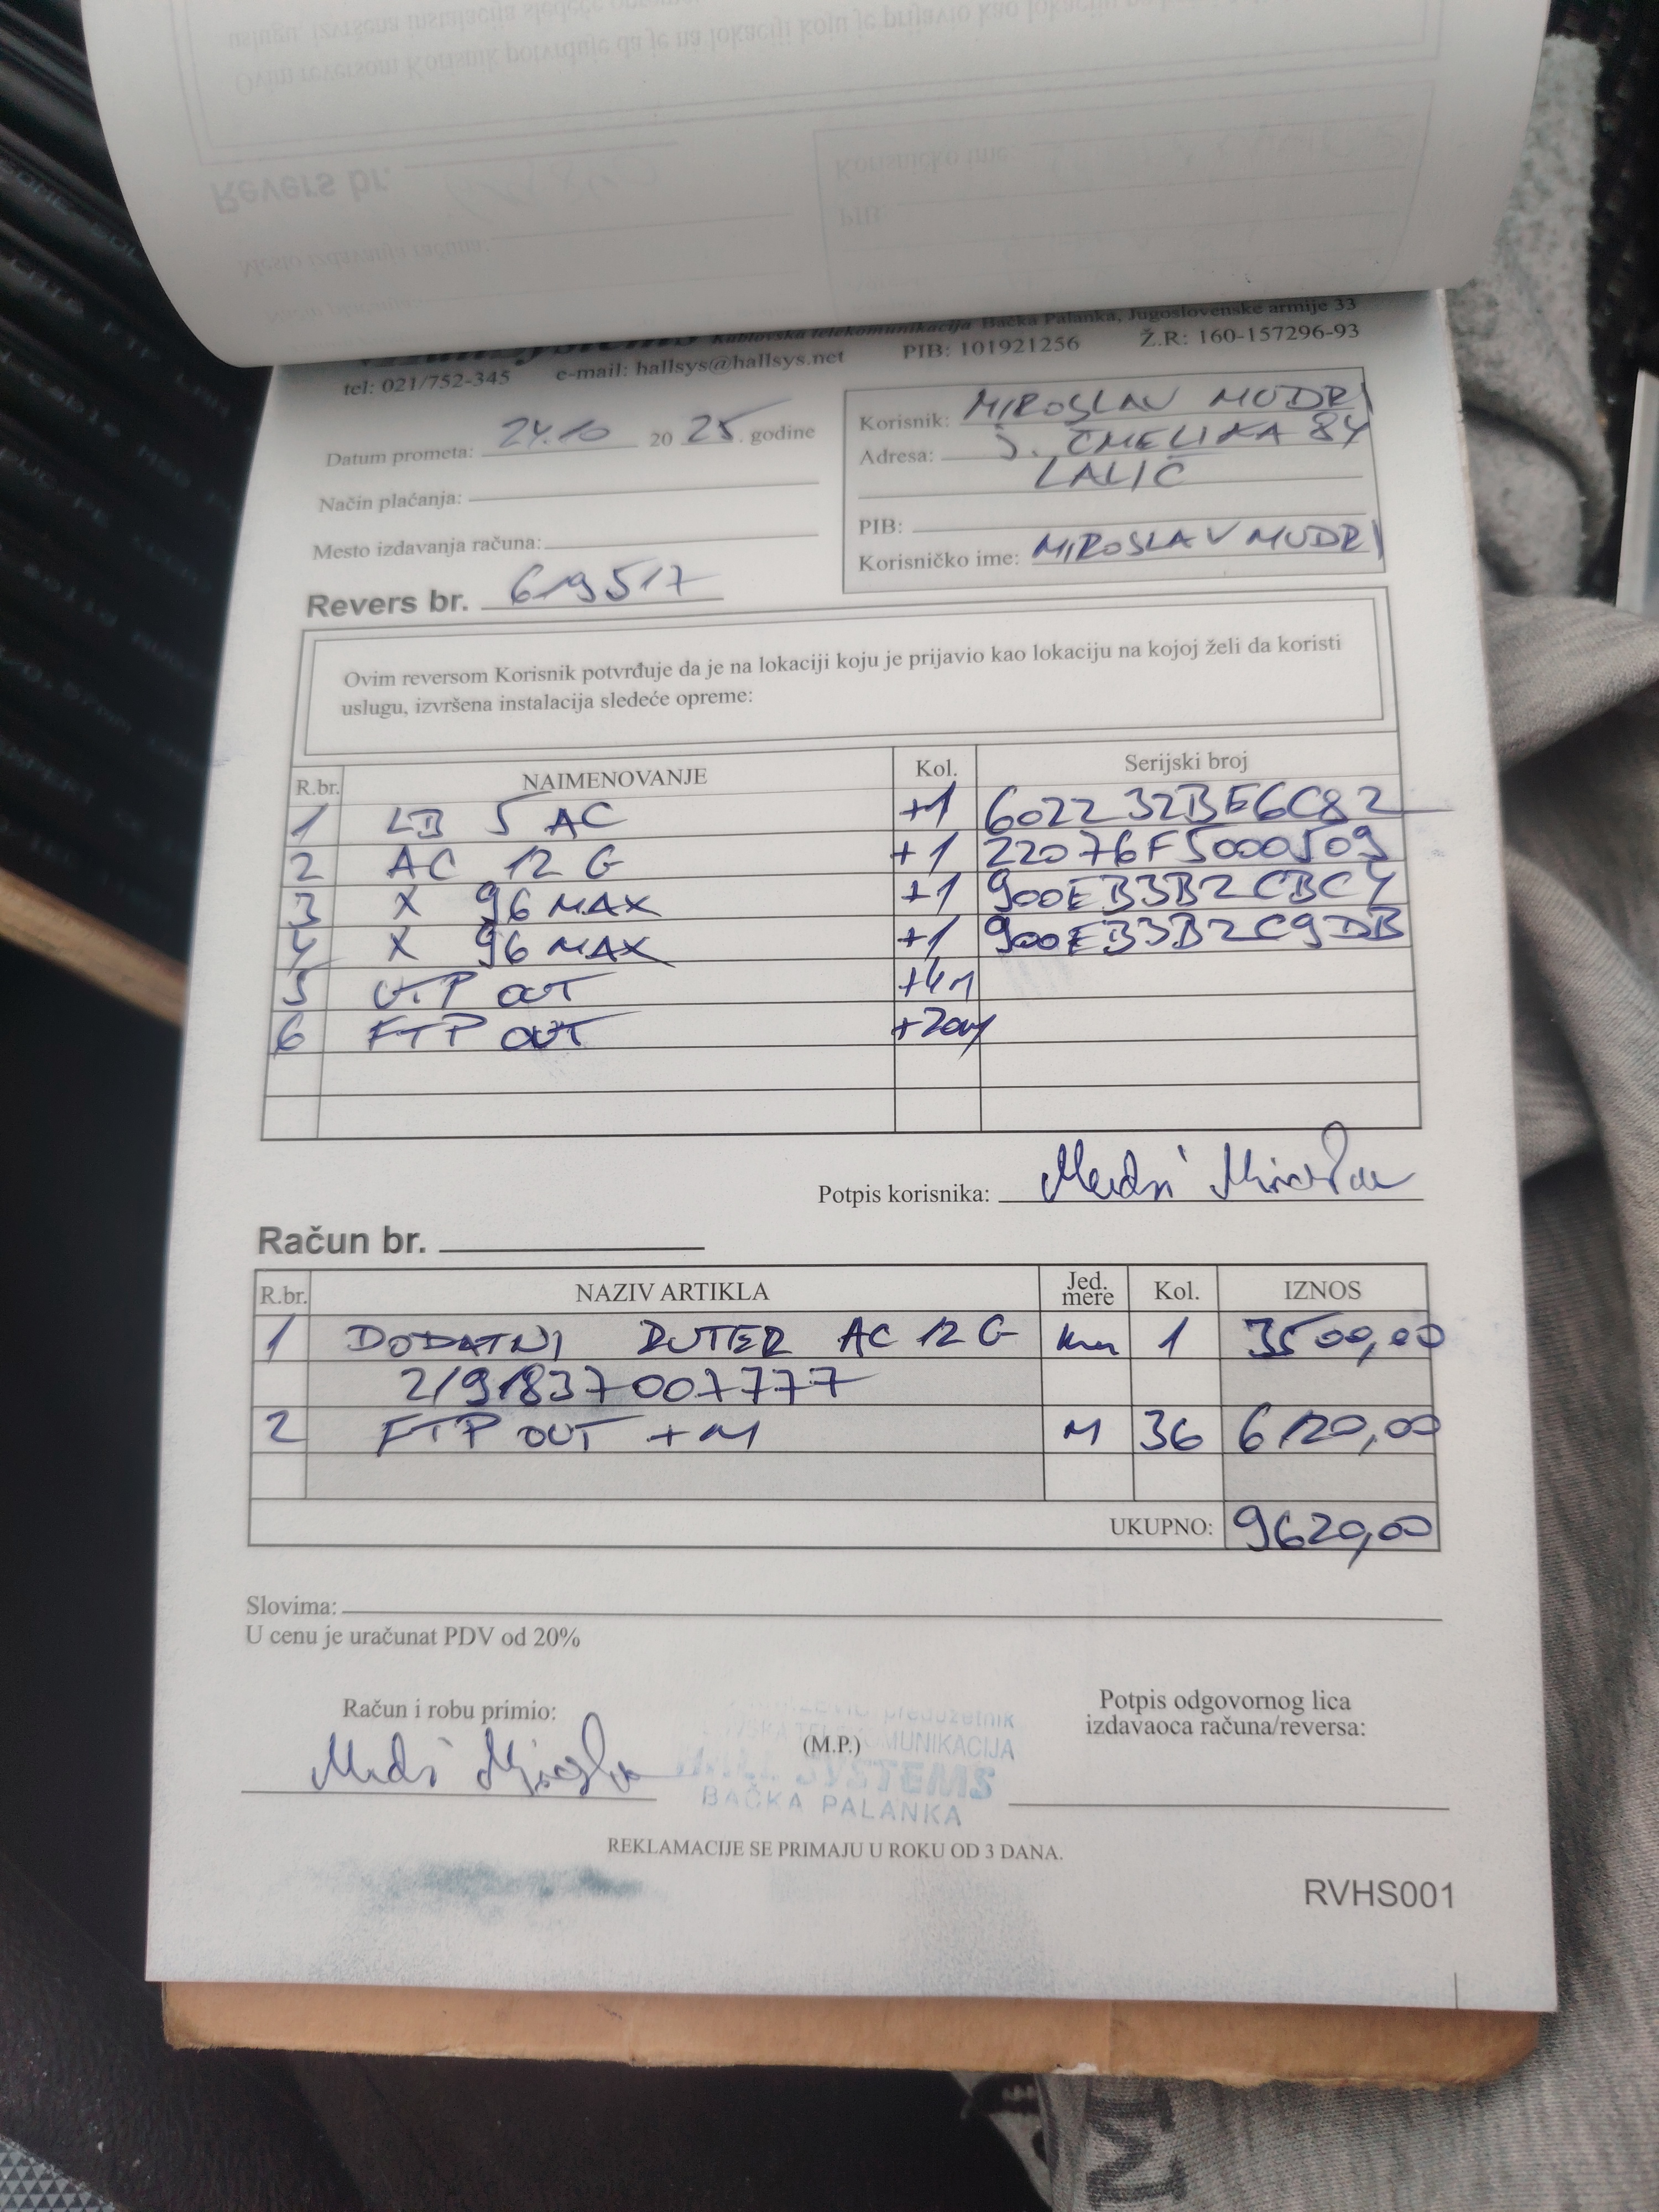 Kablovska telekomunikacija Bačka Palanka, Jugoslovenske armije 33
tel: 021/752-345 e-mail: hallsys@hallsys.net PIB: 101921256 Ž.R: 160-157296-93
Datum prometa: 24.10 2025. godine
Način plaćanja:
Mesto izdavanja računa:
Korisnik: MIROSLAV MUDRI
Adresa: J. ČMELIKA 84
LALIĆ
PIB:
Korisničko ime: MIROSLAVMUDRI
Revers br. 619517
Ovim reversom Korisnik potvrđuje da je na lokaciji koju je prijavio kao lokaciju na kojoj želi da koristi
uslugu, izvršena instalacija sledeće opreme:
R.br. NAIMENOVANJE Kol. Serijski broj
1 LB 5 AC +1 602232BE6C82
2 AC 12 G +1 22076F5000509
3 X 96 MAX +1 900EB3B2CBC4
4 X 96 MAX +1 900EB3B2C9DB
5 UTP OUT
6 FTP OUT +20M
Potpis korisnika: Mudri Miroslav
Račun br.
R.br. NAZIV ARTIKLA Jed. mere Kol. IZNOS
1 DODATNI RUTER AC 12 G kom 1 3500,00
2191837007777
2 FTP OUT + M M 36 6120,00
UKUPNO: 9620,00
Slovima:
U cenu je uračunat PDV od 20%
Račun i robu primio:
Mudri Miroslav
(M.P.)
preduzetnik
TELEKOMUNIKACIJA
HALL SYSTEMS
BAČKA PALANKA
Potpis odgovornog lica
izdavaoca računa/reversa:
REKLAMACIJE SE PRIMAJU U ROKU OD 3 DANA.
RVHS001